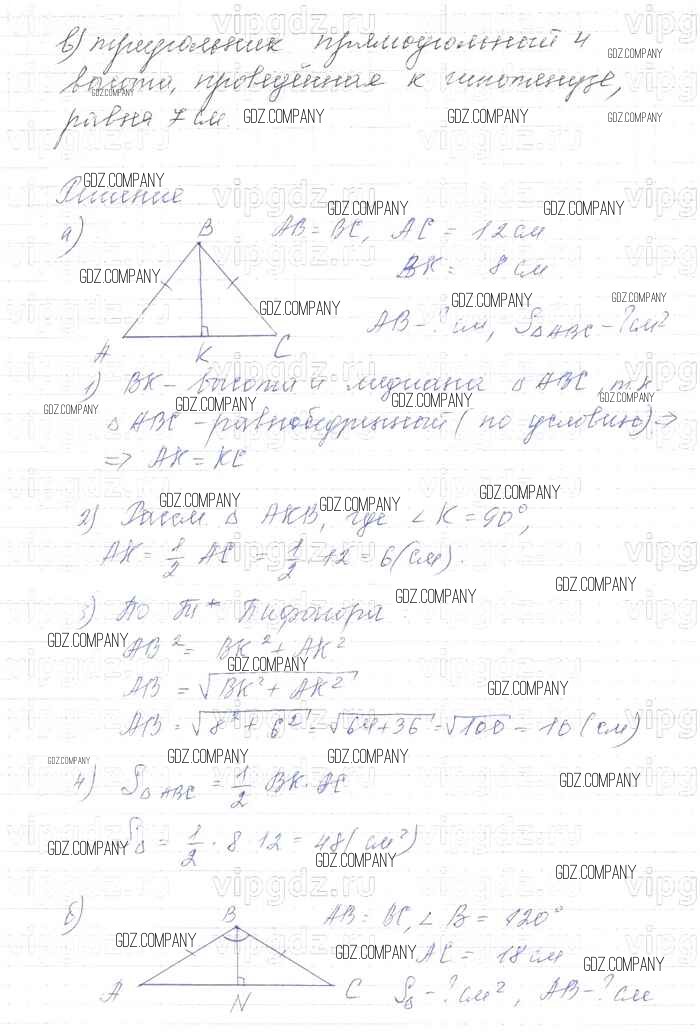 в) треугольник прямоугольный и
высота, проведённая к гипотенузе,
равна 7 см.
Решение
а)
B
AB = BC, AC = 12 см
BK = 8 см
AB - ? см, S△ABC - ? см²
A K C
1) BK - высота и медиана △ ABC, т.к.
△ ABC - равнобедренный (по условию) ⇒
⇒ AK = KC
2) Рассм △ AKB, где ∠K = 90°,
AK = 1/2 AC = 1/2 · 12 = 6 (см).
3) По Т. Пифагора
AB² = BK² + AK²
AB = √BK² + AK²
AB = √8² + 6² = √64+36 = √100 = 10 (см)
4) S△ABC = 1/2 BK · AC
S△ = 1/2 · 8 · 12 = 48 (см²)
б)
B
AB = BC, ∠B = 120°
AC = 18 см
S△ - ? см², AB - ? см
A N C
GDZ.COMPANY
vipgdz.ru